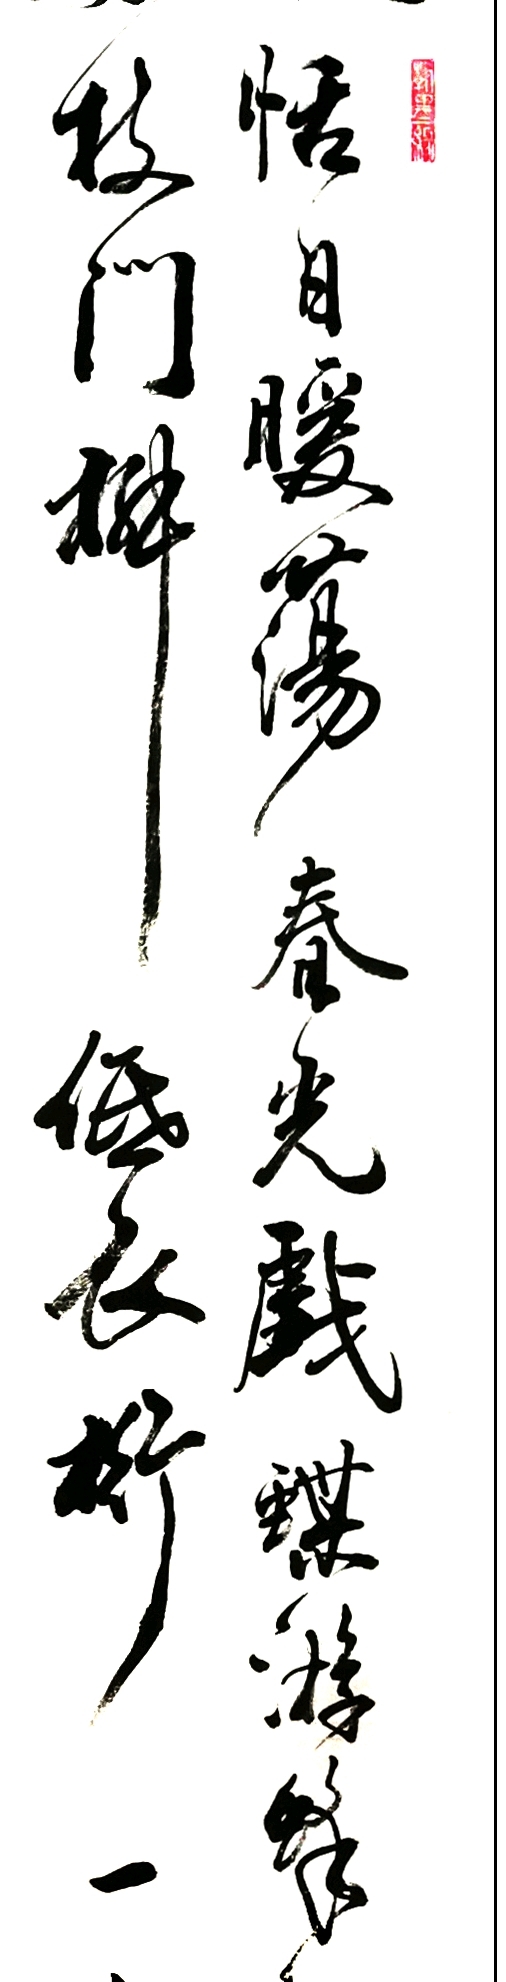 恬日暖蕩春光戲蝶游蜂
枝門柳低衣桁一